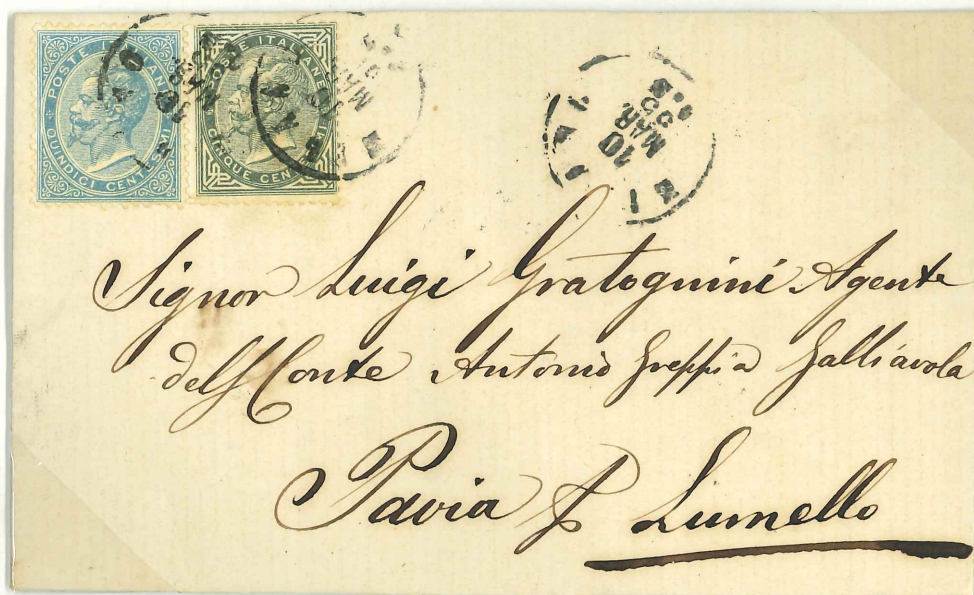 POSTE ITALIANE
QUINDICI CENTESIMI
POSTE ITALIANE
CINQUE CENTESIMI
10
MAR
65
Signor Luigi Gratognini Agente
del Conte Antonio Greppi a Galliavola
Pavia P Lumello